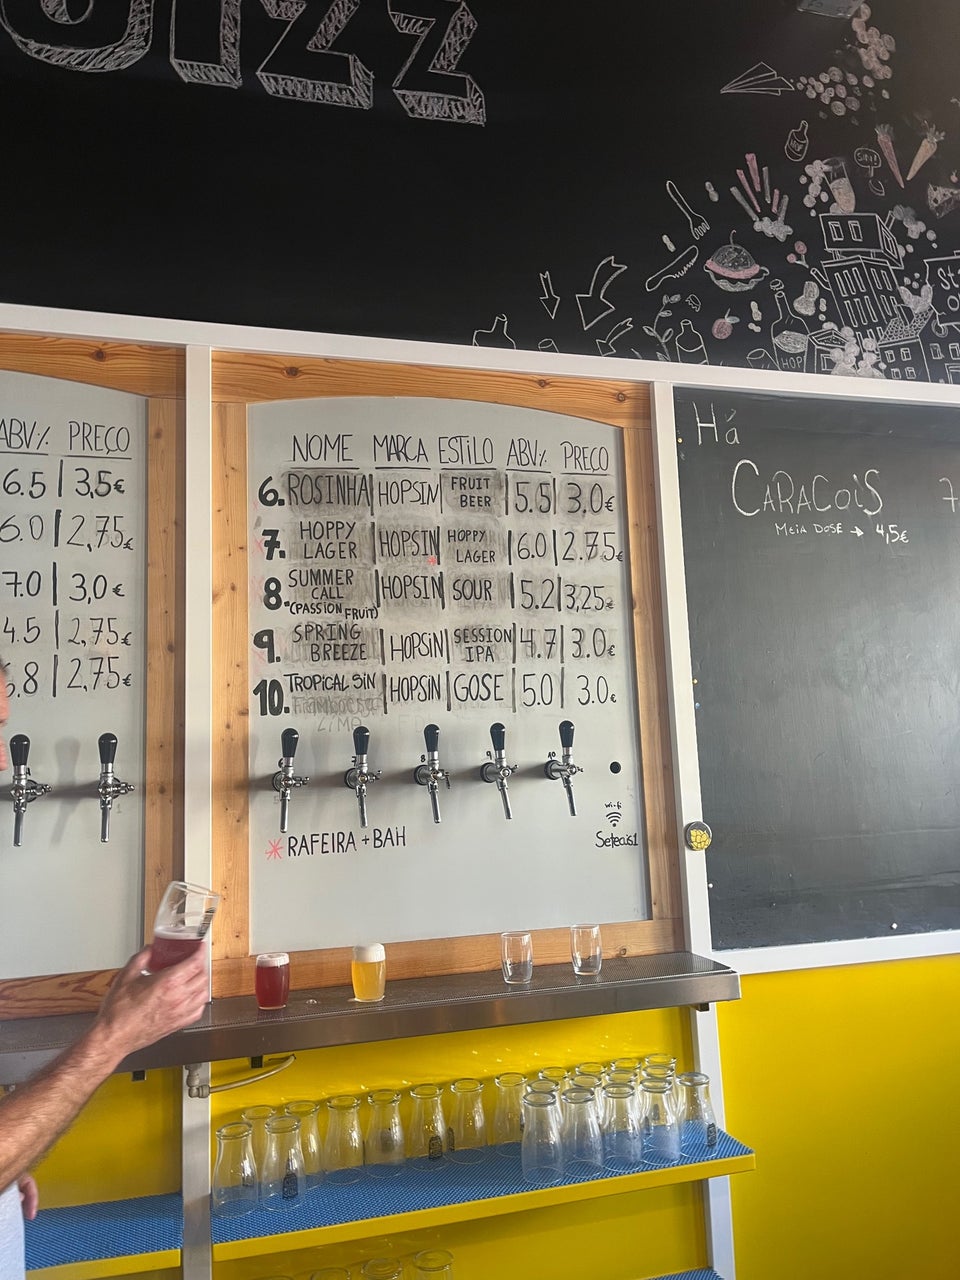 IZZ
ABV% PREÇO
6.5 3,5€
6.0 2,75€
7.0 3,0€
4.5 2,75€
.8 2,75€
NOME MARCA ESTILO ABV% PREÇO
6. ROSINHA HOPSIN FRUIT BEER 5.5 3.0€
7. HOPPY LAGER HOPSIN HOPPY LAGER 6.0 2.75€
8. SUMMER CALL (PASSION FRUIT) HOPSIN SOUR 5.2 3,25€
9. SPRING BREEZE HOPSIN SESSION IPA 4.7 3.0€
10. TROPICAL SIN HOPSIN GOSE 5.0 3.0€
7
8
9
10
RAFEIRA + BAH
wi-fi
Setecais1
Há
CARACOIS 7
MEIA DOSE → 4,5€
HOP